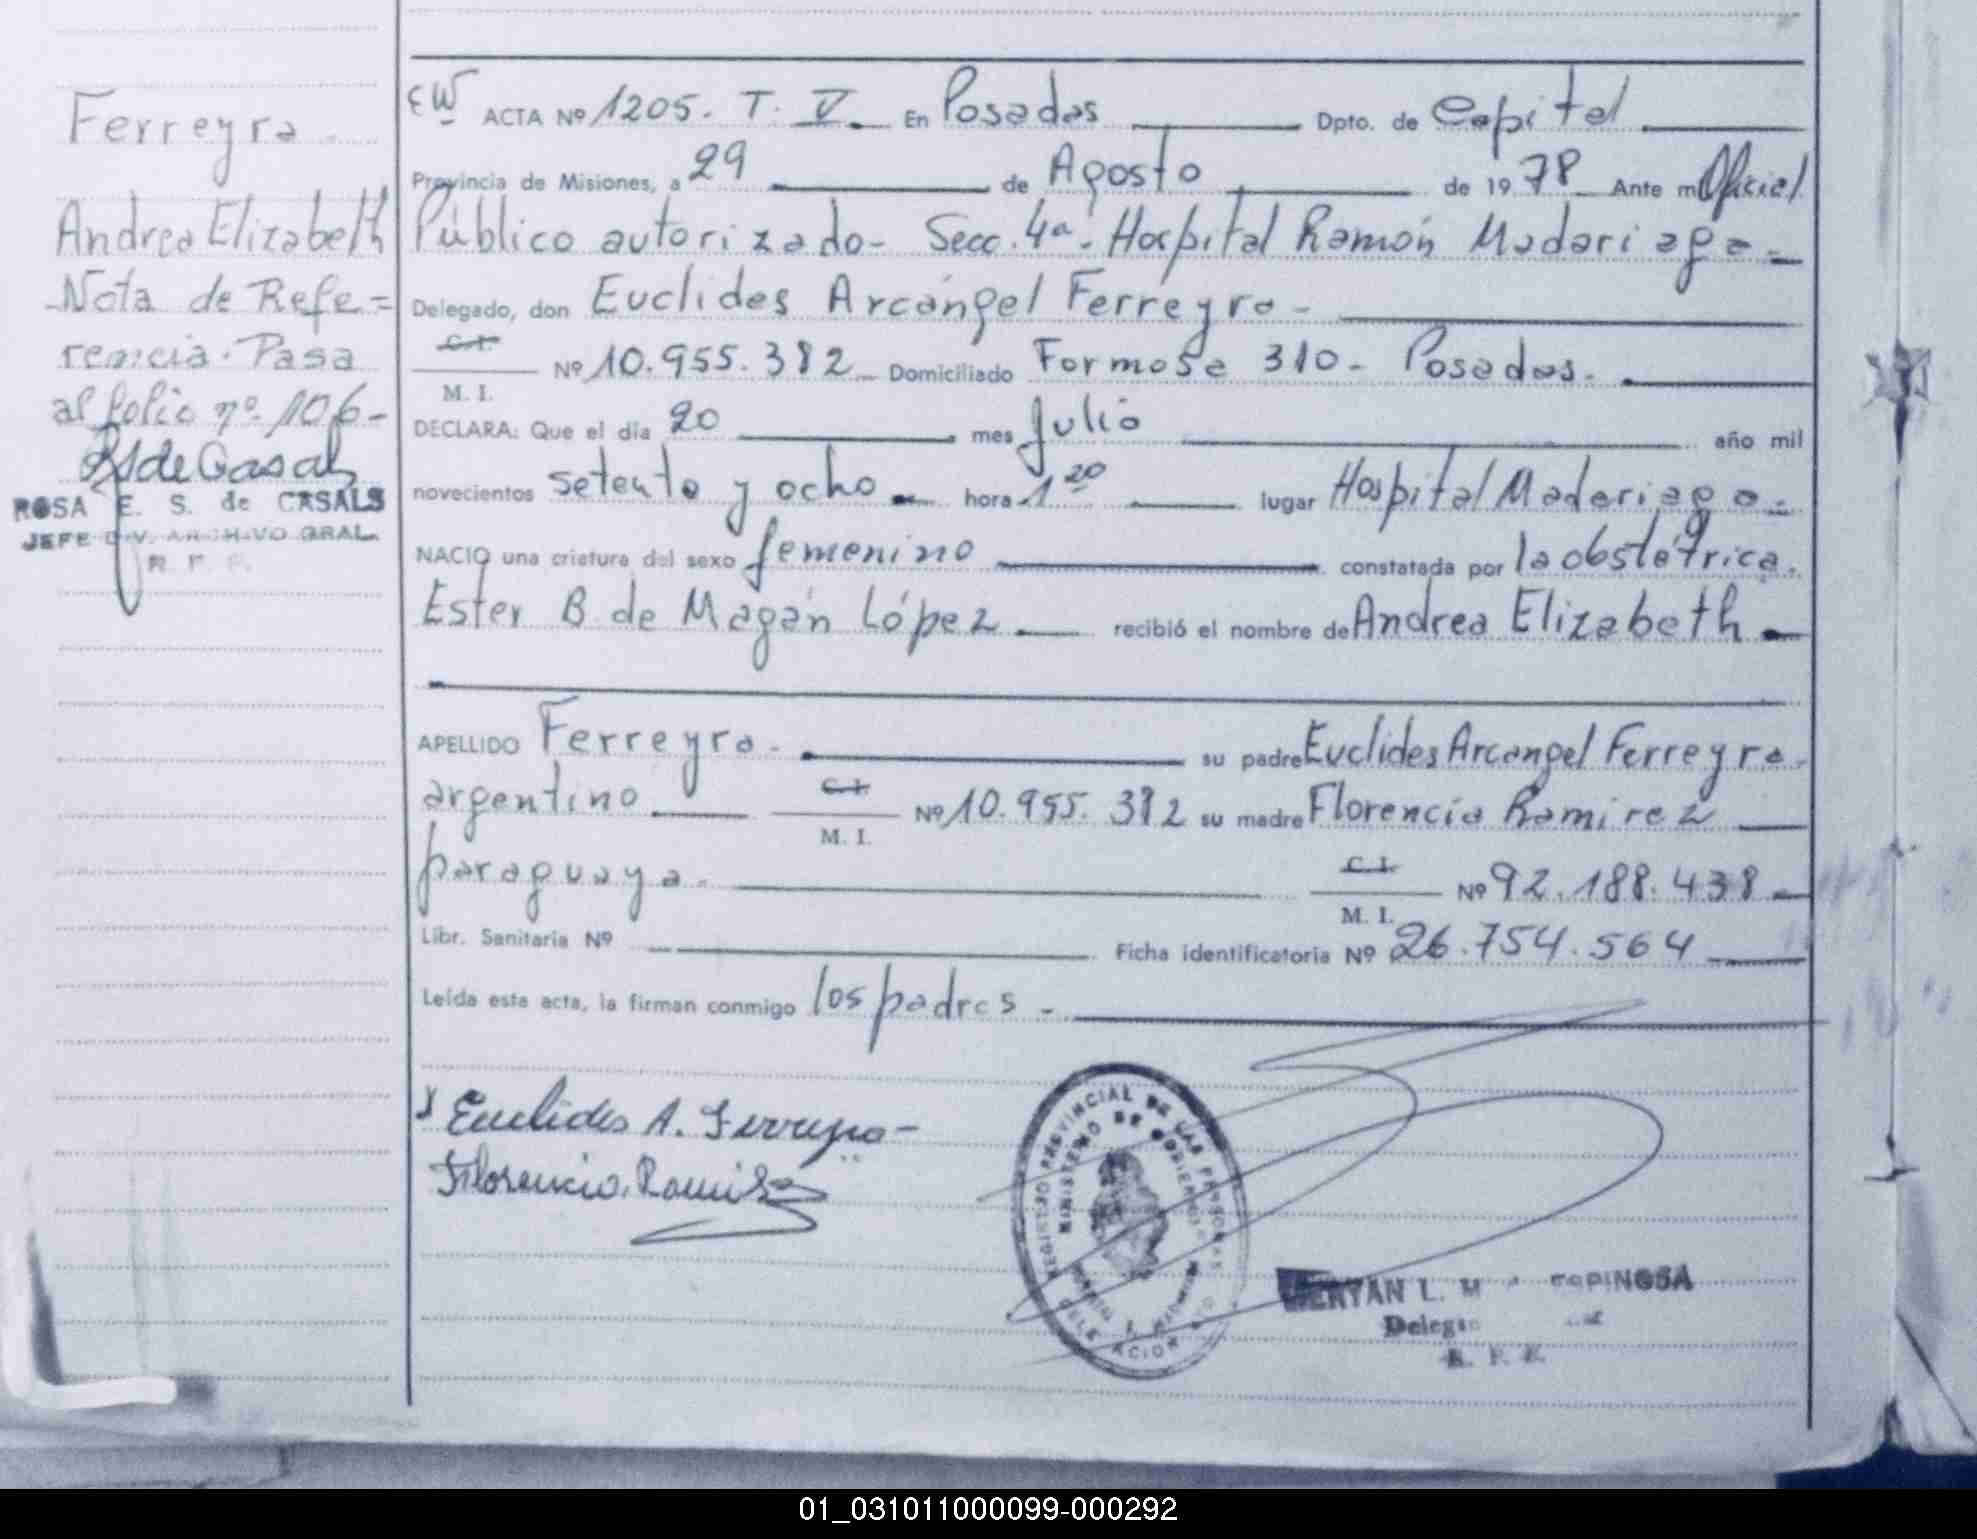 Ferreyra
Andrea Elizabeth
Nota de Refe=
rencia. Pasa
al folio nº 106-
ROSA E. S. de CASALS
JEFE DIV. ARCHIVO GRAL.
R. P. P.
ACTA Nº 1205. T. V. En Posadas Dpto. de Capital
Provincia de Misiones, a 29 de Agosto de 1978 Ante mi Oficial
Público autorizado- Secc. 4ª. Hospital Ramón Madariaga-
Delegado, don Euclides Arcángel Ferreyra-
C. I.
M. I. Nº 10.955.382 Domiciliado Formosa 310- Posadas.
DECLARA: Que el día 20 mes Julio año mil
novecientos setenta y ocho hora 1 20 lugar Hospital Madariaga.
NACIO una criatura del sexo femenino constatada por la obstétrica.
Ester B. de Magán López recibió el nombre de Andrea Elizabeth
APELLIDO Ferreyra. su padre Euclides Arcangel Ferreyra.
argentino C.I. M. I. Nº 10.955.382 su madre Florencia Ramirez
paraguaya. C. I. M. I. Nº 92.188.438
Libr. Sanitaria Nº Ficha identificatoria Nº 26.754.564
Leída esta acta, la firman conmigo los padres.
Euclides A. Ferreyra
Florencia Ramirez
REGISTRO PROVINCIAL DE LAS PERSONAS
MINISTERIO DE GOBIERNO
DELEGACION
L. M ESPINOSA
R. P. P.
01_031011000099-000292